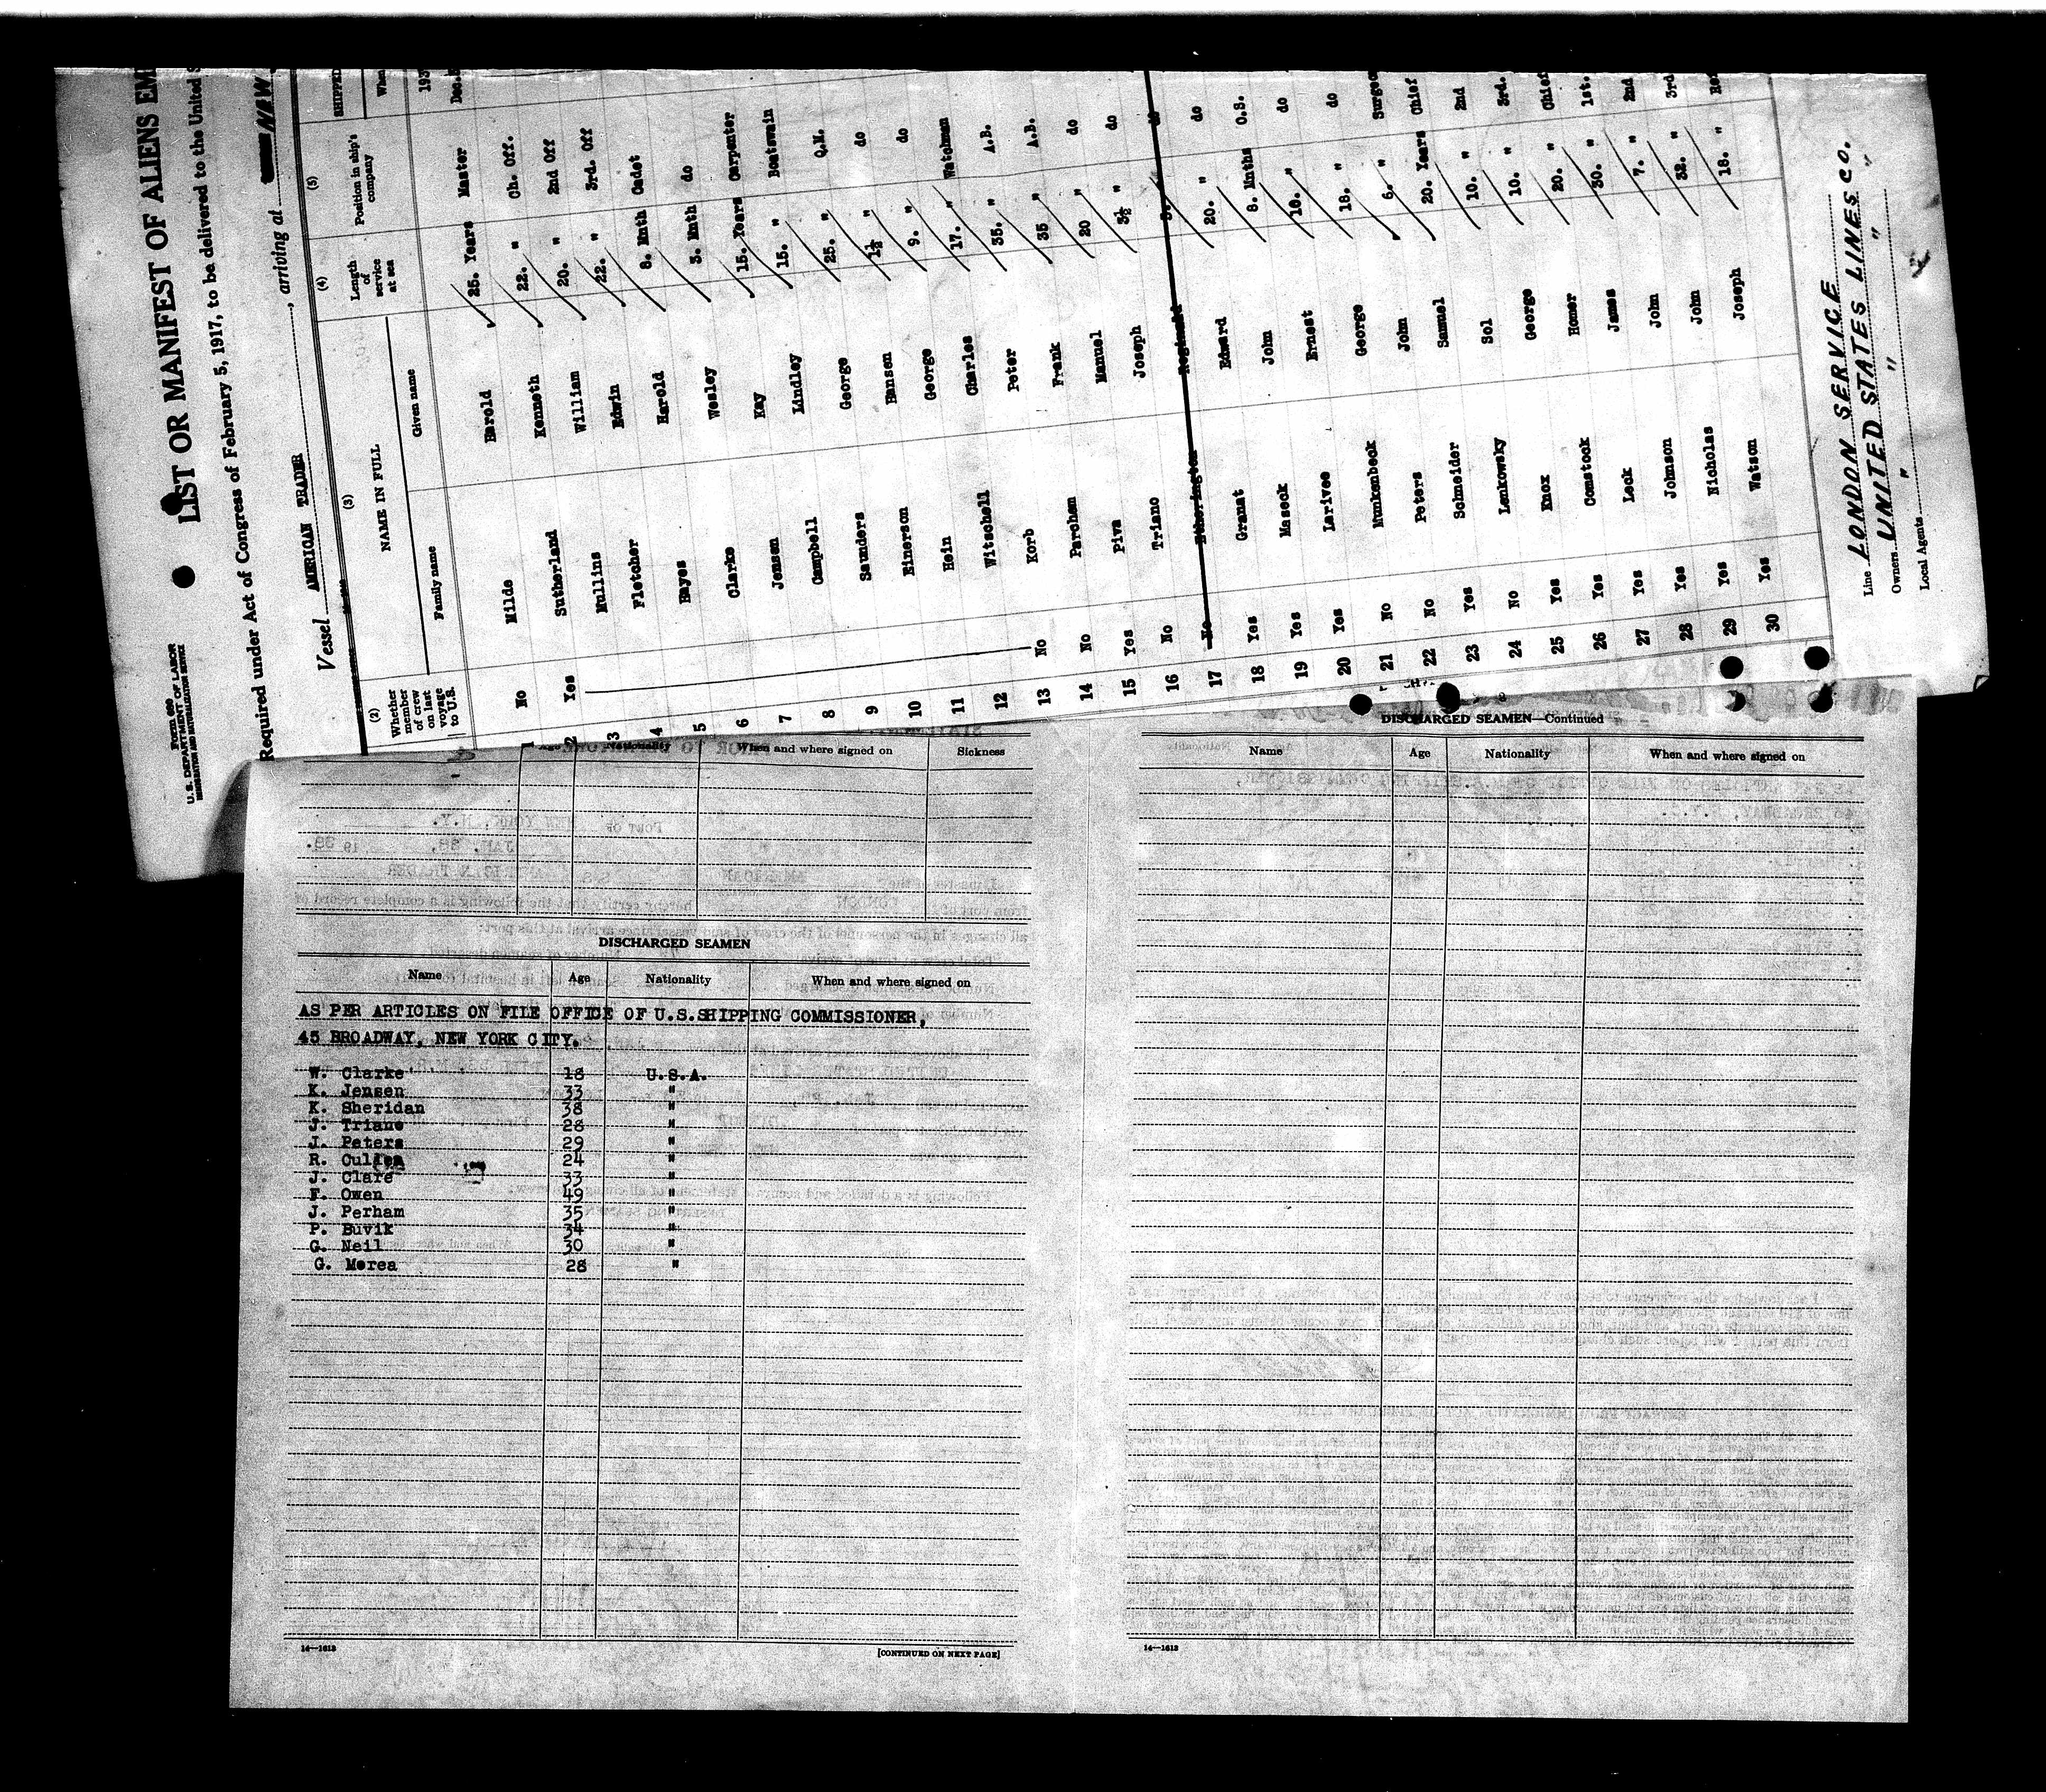 Form 680
U. S. DEPARTMENT OF LABOR
IMMIGRATION AND NATURALIZATION SERVICE
LIST OR MANIFEST OF ALIENS EM
Required under Act of Congress of February 5, 1917, to be delivered to the United S
Vessel AMERICAN TRADER, arriving at NEW
(2) (3) (4) (5)
Whether member of crew on last voyage to U.S. NAME IN FULL Length of service at sea Position in ship's company SHIPPED
Family name Given name When
193
Dec.
1 No Milde Harold 25. Years Master
2 Yes Sutherland Kenneth 22. " Ch. Off.
3 Mullins William 20. " 2nd Off
4 Fletcher Edwin 22. " 3rd. Off
5 Hayes Harold 8. Mnth Cadet
6 Clarke Wesley 3. Mnth do
7 Jensen Kay 15. Years Carpenter
8 Campbell Lindley 15. " Boatswain
9 Saunders George 25. " Q.M.
10 Einerson Hansen 1½ " do
11 Hein George 9. " do
12 Witschell Charles 17. " Watchman
13 No Korb Peter 35. " A.B.
14 No Parchem Frank 35 " A.B.
15 Yes Piva Manuel 20 " do
16 No Triano Joseph 3½ " do
17 No Etherington Reginald do
18 Yes Granat Edward 20. " do
19 Yes Maseck John 8. Mnths O.S.
20 Yes Larivee Ernest 10. " do
21 No Munkenbeck George 18. " do
22 No Peters John 6. " Surgeo
23 Yes Schneider Samuel 20. Years Chief
24 No Lenkowsky Sol 10. " 2nd
25 Yes Knox George 10. " 3rd.
26 Yes Comstock Homer 20. " Chief
27 Yes Leck James 30. " 1st.
28 Yes Johnson John 7. " 2nd
29 Yes Nicholas John 32. " 3rd
30 Yes Watson Joseph 18. "
Line LONDON SERVICE
Owners UNITED STATES LINES CO.
Local Agents " " " "
Age Nationality When and where signed on Sickness
DISCHARGED SEAMEN
Name Age Nationality When and where signed on
AS PER ARTICLES ON FILE OFFICE OF U.S.SHIPPING COMMISSIONER,
45 BROADWAY, NEW YORK CITY.
W. Clarke 18 U.S.A.
K. Jensen 33 "
K. Sheridan 38 "
J. Triano 28 "
J. Peters 29 "
R. Cullen 24 "
J. Clare 33 "
F. Owen 49 "
J. Perham 35 "
P. Buvik 34 "
G. Neil 30 "
G. Morea 28 "
14—1613
[CONTINUED ON NEXT PAGE]
DISCHARGED SEAMEN—Continued
Name Age Nationality When and where signed on
14—1613